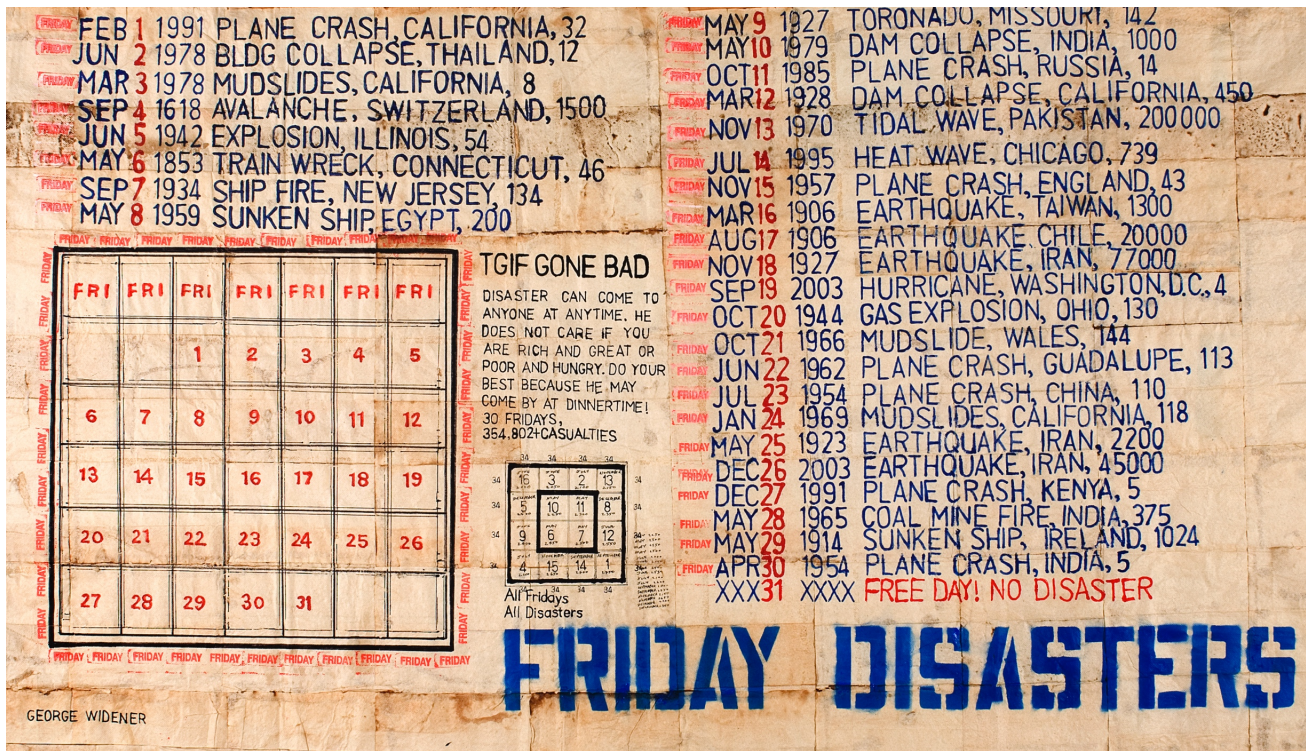 FRIDAY FEB 1 1991 PLANE CRASH, CALIFORNIA, 32
FRIDAY JUN 2 1978 BLDG COLLAPSE, THAILAND, 12
FRIDAY MAR 3 1978 MUDSLIDES, CALIFORNIA, 8
FRIDAY SEP 4 1618 AVALANCHE, SWITZERLAND, 1500
FRIDAY JUN 5 1942 EXPLOSION, ILLINOIS, 54
FRIDAY MAY 6 1853 TRAIN WRECK, CONNECTICUT, 46
FRIDAY SEP 7 1934 SHIP FIRE, NEW JERSEY, 134
FRIDAY MAY 8 1959 SUNKEN SHIP, EGYPT, 200
FRIDAY FRIDAY FRIDAY FRIDAY FRIDAY FRIDAY FRIDAY FRIDAY
FRI FRI FRI FRI FRI FRI FRI
1 2 3 4 5
6 7 8 9 10 11 12
13 14 15 16 17 18 19
20 21 22 23 24 25 26
27 28 29 30 31
FRIDAY FRIDAY FRIDAY FRIDAY FRIDAY FRIDAY FRIDAY FRIDAY FRIDAY FRIDAY
TGIF GONE BAD
DISASTER CAN COME TO
ANYONE AT ANYTIME. HE
DOES NOT CARE IF YOU
ARE RICH AND GREAT OR
POOR AND HUNGRY. DO YOUR
BEST BECAUSE HE MAY
COME BY AT DINNERTIME!
30 FRIDAYS,
354,802+CASUALTIES
34 34 34 34
34 16 3 2 13 34
34 5 10 11 8 34
34 9 6 7 12 34
34 4 15 14 1 34
34 34
All Fridays
All Disasters
FRIDAY MAY 9 1927 TORONADO, MISSOURI, 142
FRIDAY MAY 10 1979 DAM COLLAPSE, INDIA, 1000
FRIDAY OCT 11 1985 PLANE CRASH, RUSSIA, 14
FRIDAY MAR 12 1928 DAM COLLAPSE, CALIFORNIA, 450
FRIDAY NOV 13 1970 TIDAL WAVE, PAKISTAN, 200000
FRIDAY JUL 14 1995 HEAT WAVE, CHICAGO, 739
FRIDAY NOV 15 1957 PLANE CRASH, ENGLAND, 43
FRIDAY MAR 16 1906 EARTHQUAKE, TAIWAN, 1300
FRIDAY AUG 17 1906 EARTHQUAKE, CHILE, 20000
FRIDAY NOV 18 1927 EARTHQUAKE, IRAN, 77000
FRIDAY SEP 19 2003 HURRICANE, WASHINGTON,D.C., 4
FRIDAY OCT 20 1944 GAS EXPLOSION, OHIO, 130
FRIDAY OCT 21 1966 MUDSLIDE, WALES, 144
FRIDAY JUN 22 1962 PLANE CRASH, GUADALUPE, 113
FRIDAY JUL 23 1954 PLANE CRASH, CHINA, 110
FRIDAY JAN 24 1969 MUDSLIDES, CALIFORNIA, 118
FRIDAY MAY 25 1923 EARTHQUAKE, IRAN, 2200
FRIDAY DEC 26 2003 EARTHQUAKE, IRAN, 45000
FRIDAY DEC 27 1991 PLANE CRASH, KENYA, 5
FRIDAY MAY 28 1965 COAL MINE FIRE, INDIA, 375
FRIDAY MAY 29 1914 SUNKEN SHIP, IRELAND, 1024
FRIDAY APR 30 1954 PLANE CRASH, INDIA, 5
XXX 31 XXXX FREE DAY! NO DISASTER
FRIDAY DISASTERS
GEORGE WIDENER